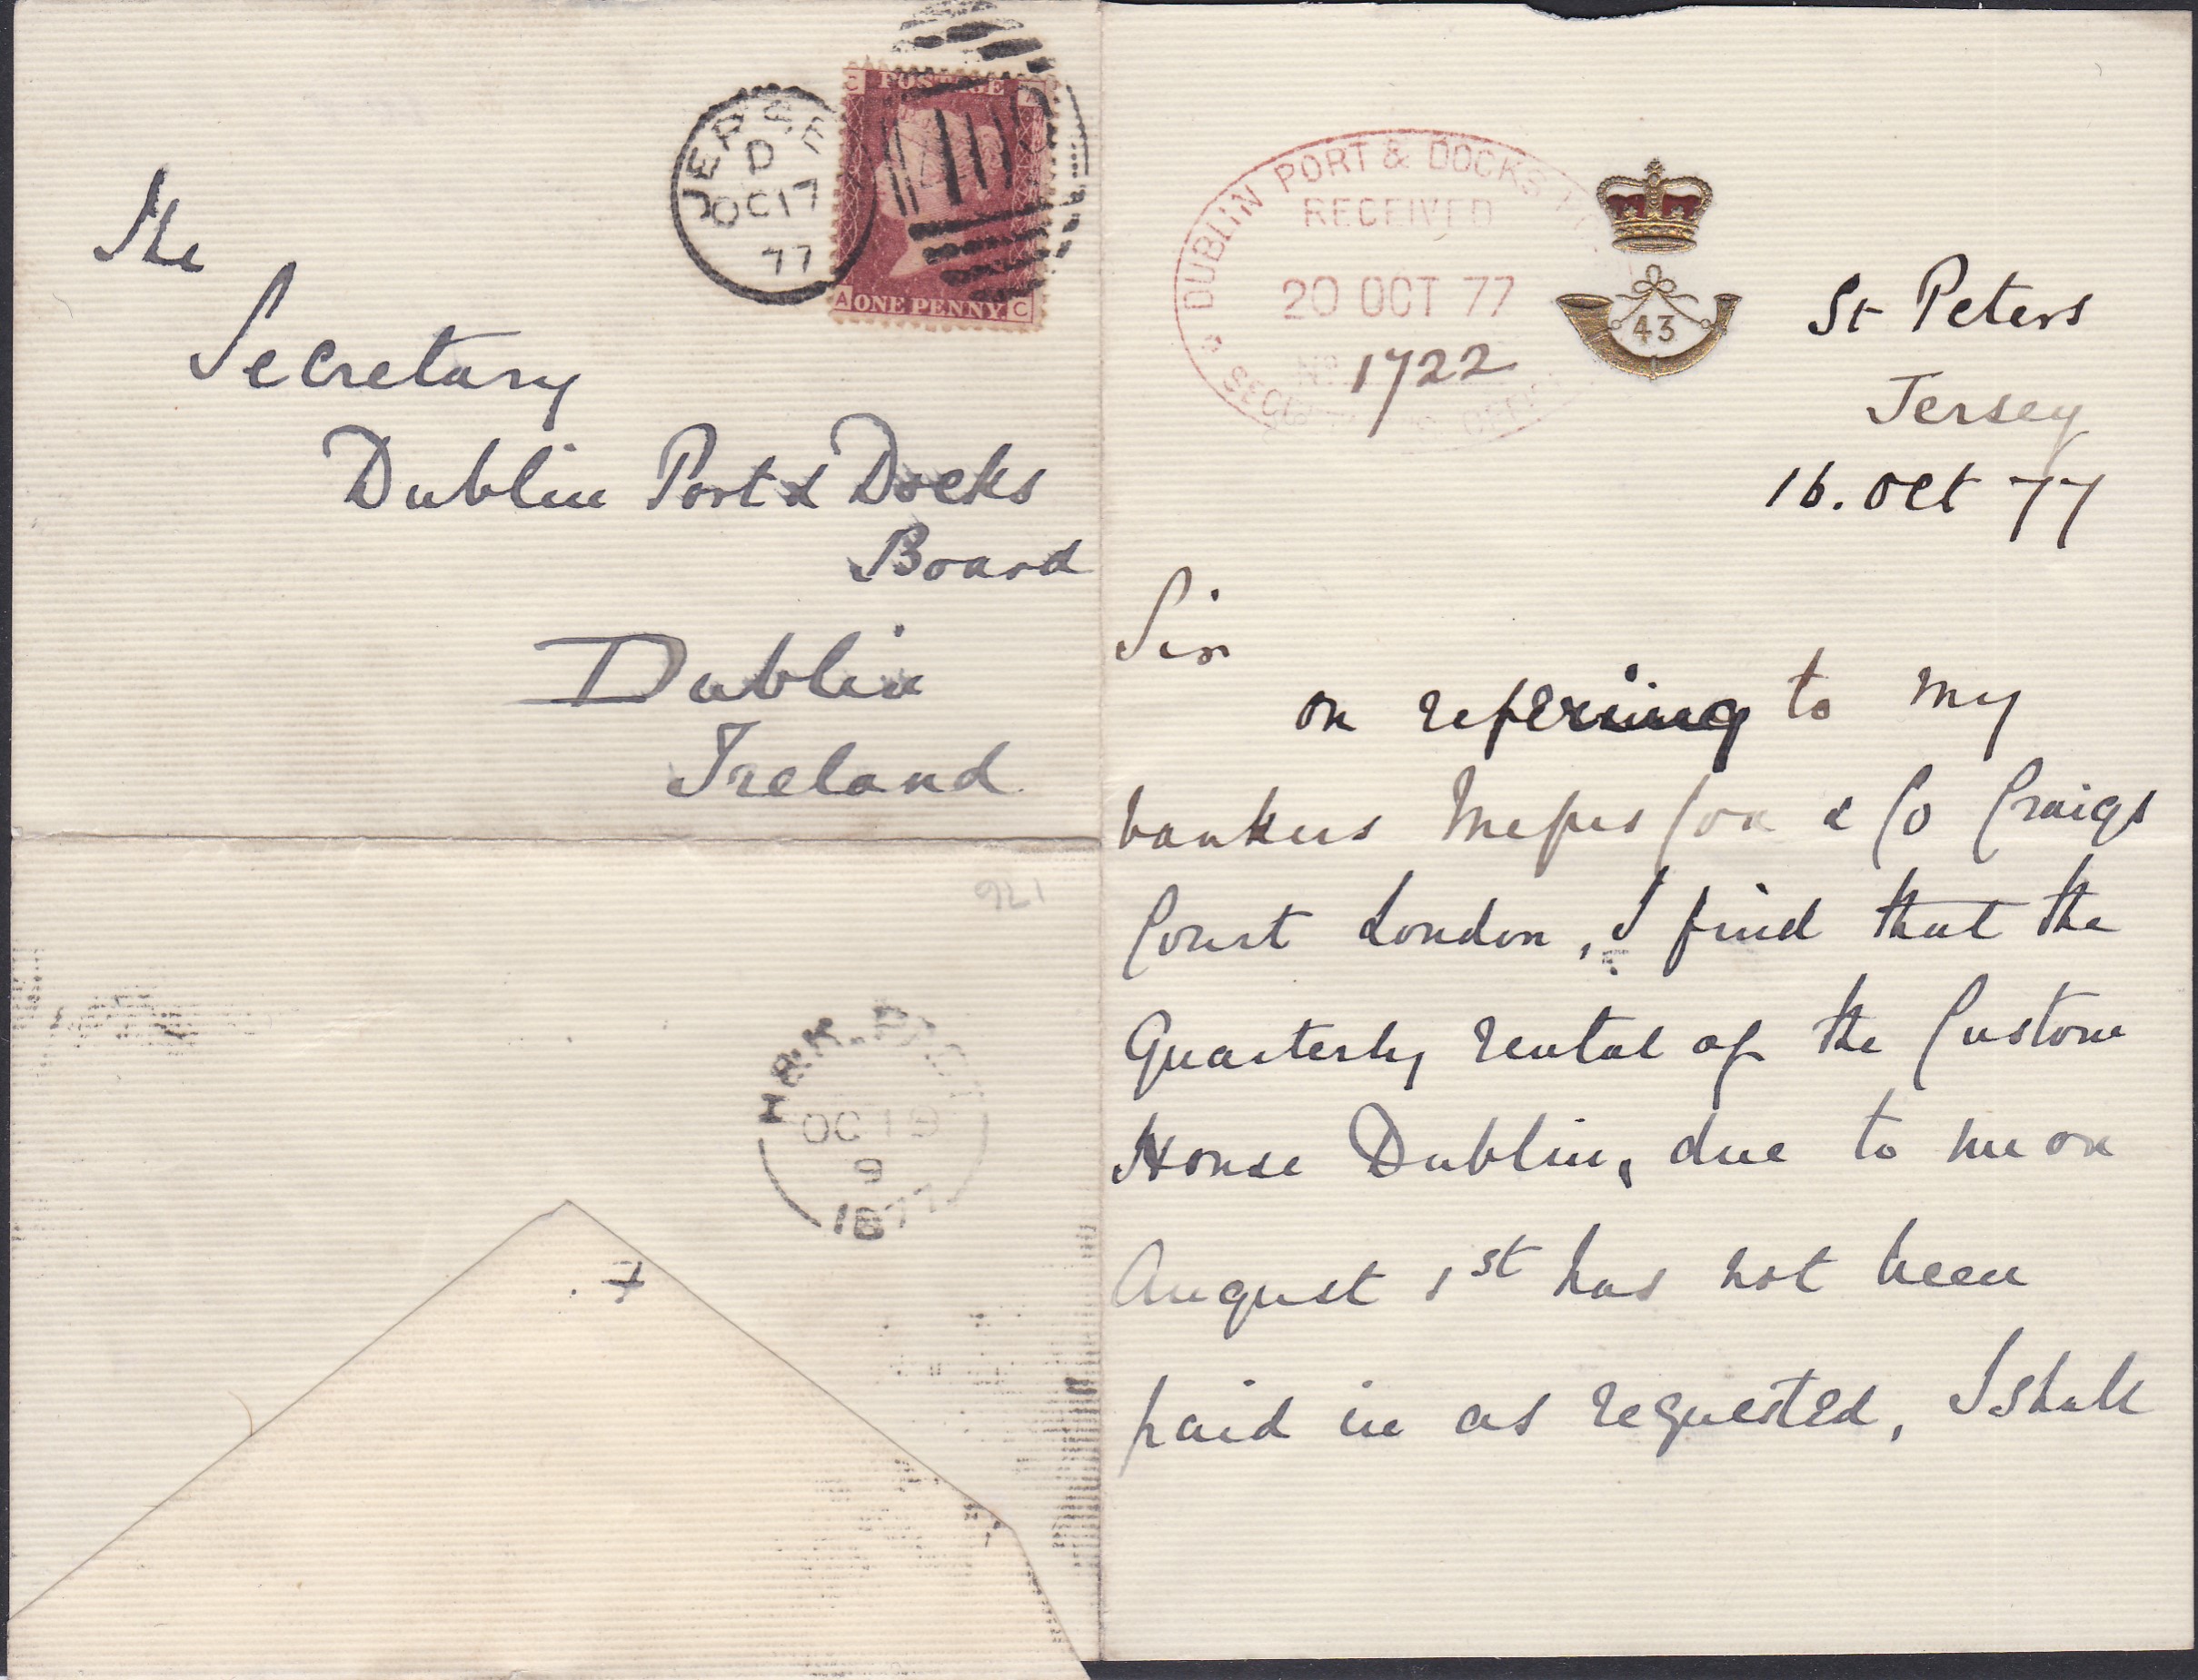 The
Secretary
Dublin Port & Docks
Board
Dublin
Ireland
JERSE
D
OC 17
77
POSTAGE
C A
A ONE PENNY C
921
H&K. PKT
OC 19
9
1877
DUBLIN PORT & DOCKS
RECEIVED
20 OCT 77
No 1722
43
St Peters
Jersey
16. Oct 77
Sir
on referring to my
bankers Messrs Cox & Co Craigs
Court London, I find that the
Quarterly rental of the Custom
House Dublin, due to me on
August 1st has not been
paid in as requested, I shall